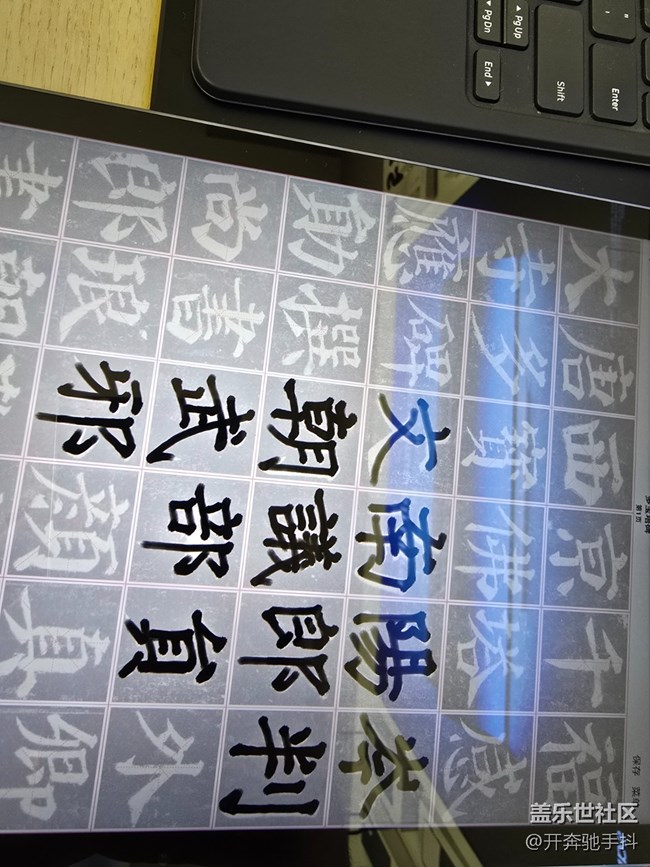 PgUp
PgDn
End
Shift
Enter
多宝塔碑
第1页
保存
大唐西京千福
寺多寶佛塔感
應碑文南陽岑
勛撰朝議郎判
尚書武部員外
郎琅邪顏真卿
書
盖乐世社区
@开奔驰手抖